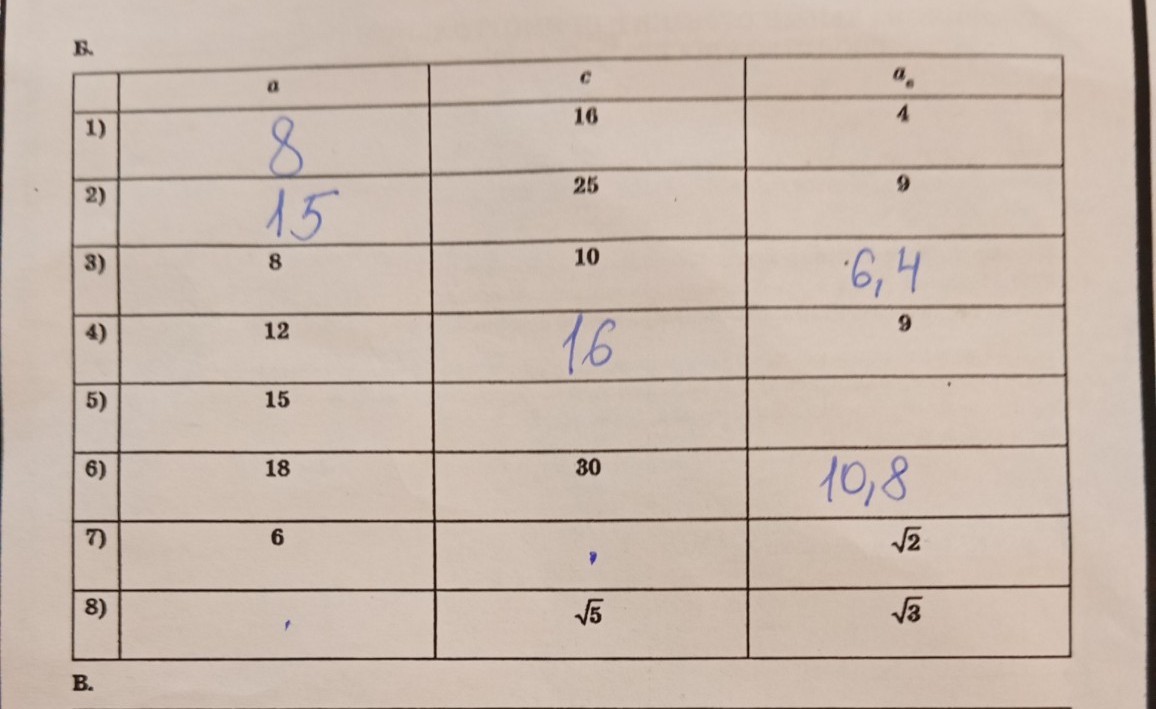 Б.
a c a_c
1) 8 16 4
2) 15 25 9
3) 8 10 6,4
4) 12 16 9
5) 15
6) 18 30 10,8
7) 6 √2
8) √5 √3
В.